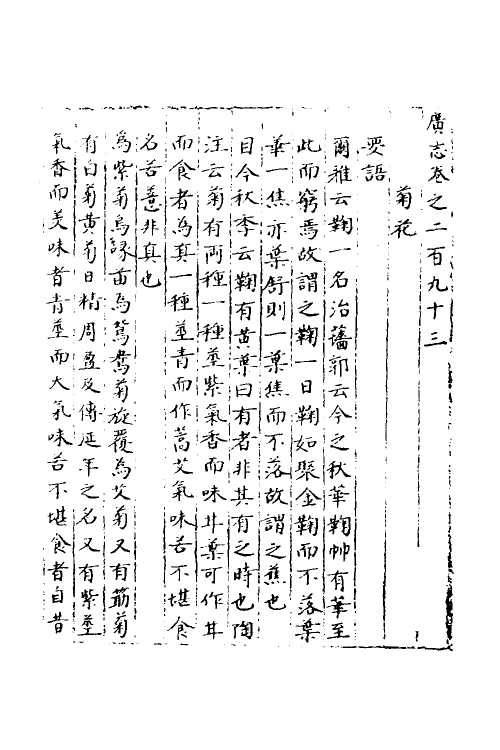 廣志卷之二百九十三
菊花
要語
爾雅云鞠一名治蘠郭云今之秋華鞠帥有華至
此而窮焉故謂之鞠一曰鞠如聚金鞠而不落葉
華一焦亦葉舒則一葉焦而不落故謂之蕉也
月令秋季云鞠有黃葉曰有者非其有之時也陶
注云菊有兩種一種莖紫氣香而味甘葉可作羹
而食者為真一種莖青而作蒿艾氣味苦不堪食
名苦薏非真也
為紫菊馬緣苗為鴛鴦菊旋覆為艾菊又有筋菊
有白菊黃菊日精周盈及傅延年之名又有紫莖
氣香而美味者青莖而大氣味苦不堪食者自昔